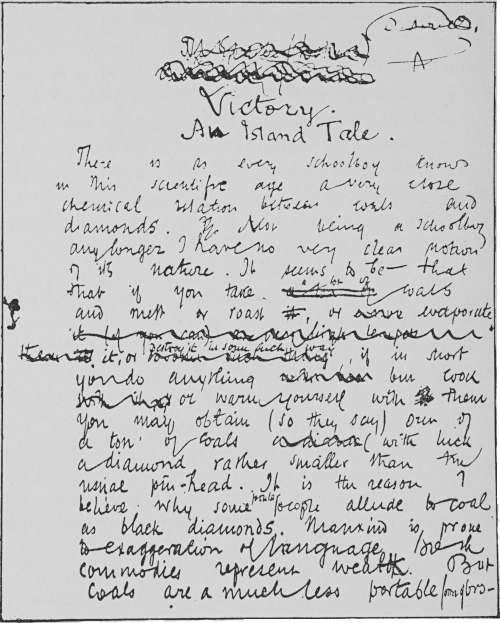 2 series.
A
Victory.
An Island Tale.
There is as every schoolboy knows
in this scientific age a very close
chemical relation between coals and
diamonds. Not being a schoolboy
any longer I have no very clear notion
of its nature. It seems to be that
that if you take coals
and melt or roast or evaporate
it, or destroy it in some such way if in short
you do anything but cook
or warm yourself with them
you may obtain (so they say) out of
a ton of coals (with luck
a diamond rather smaller than the
usual pin-head. It is the reason I
believe why some people allude to coal
as black diamonds. Mankind is prone
to exaggeration of language. Both
commodies represent wealth. But
coals are a much less portable form of pro-